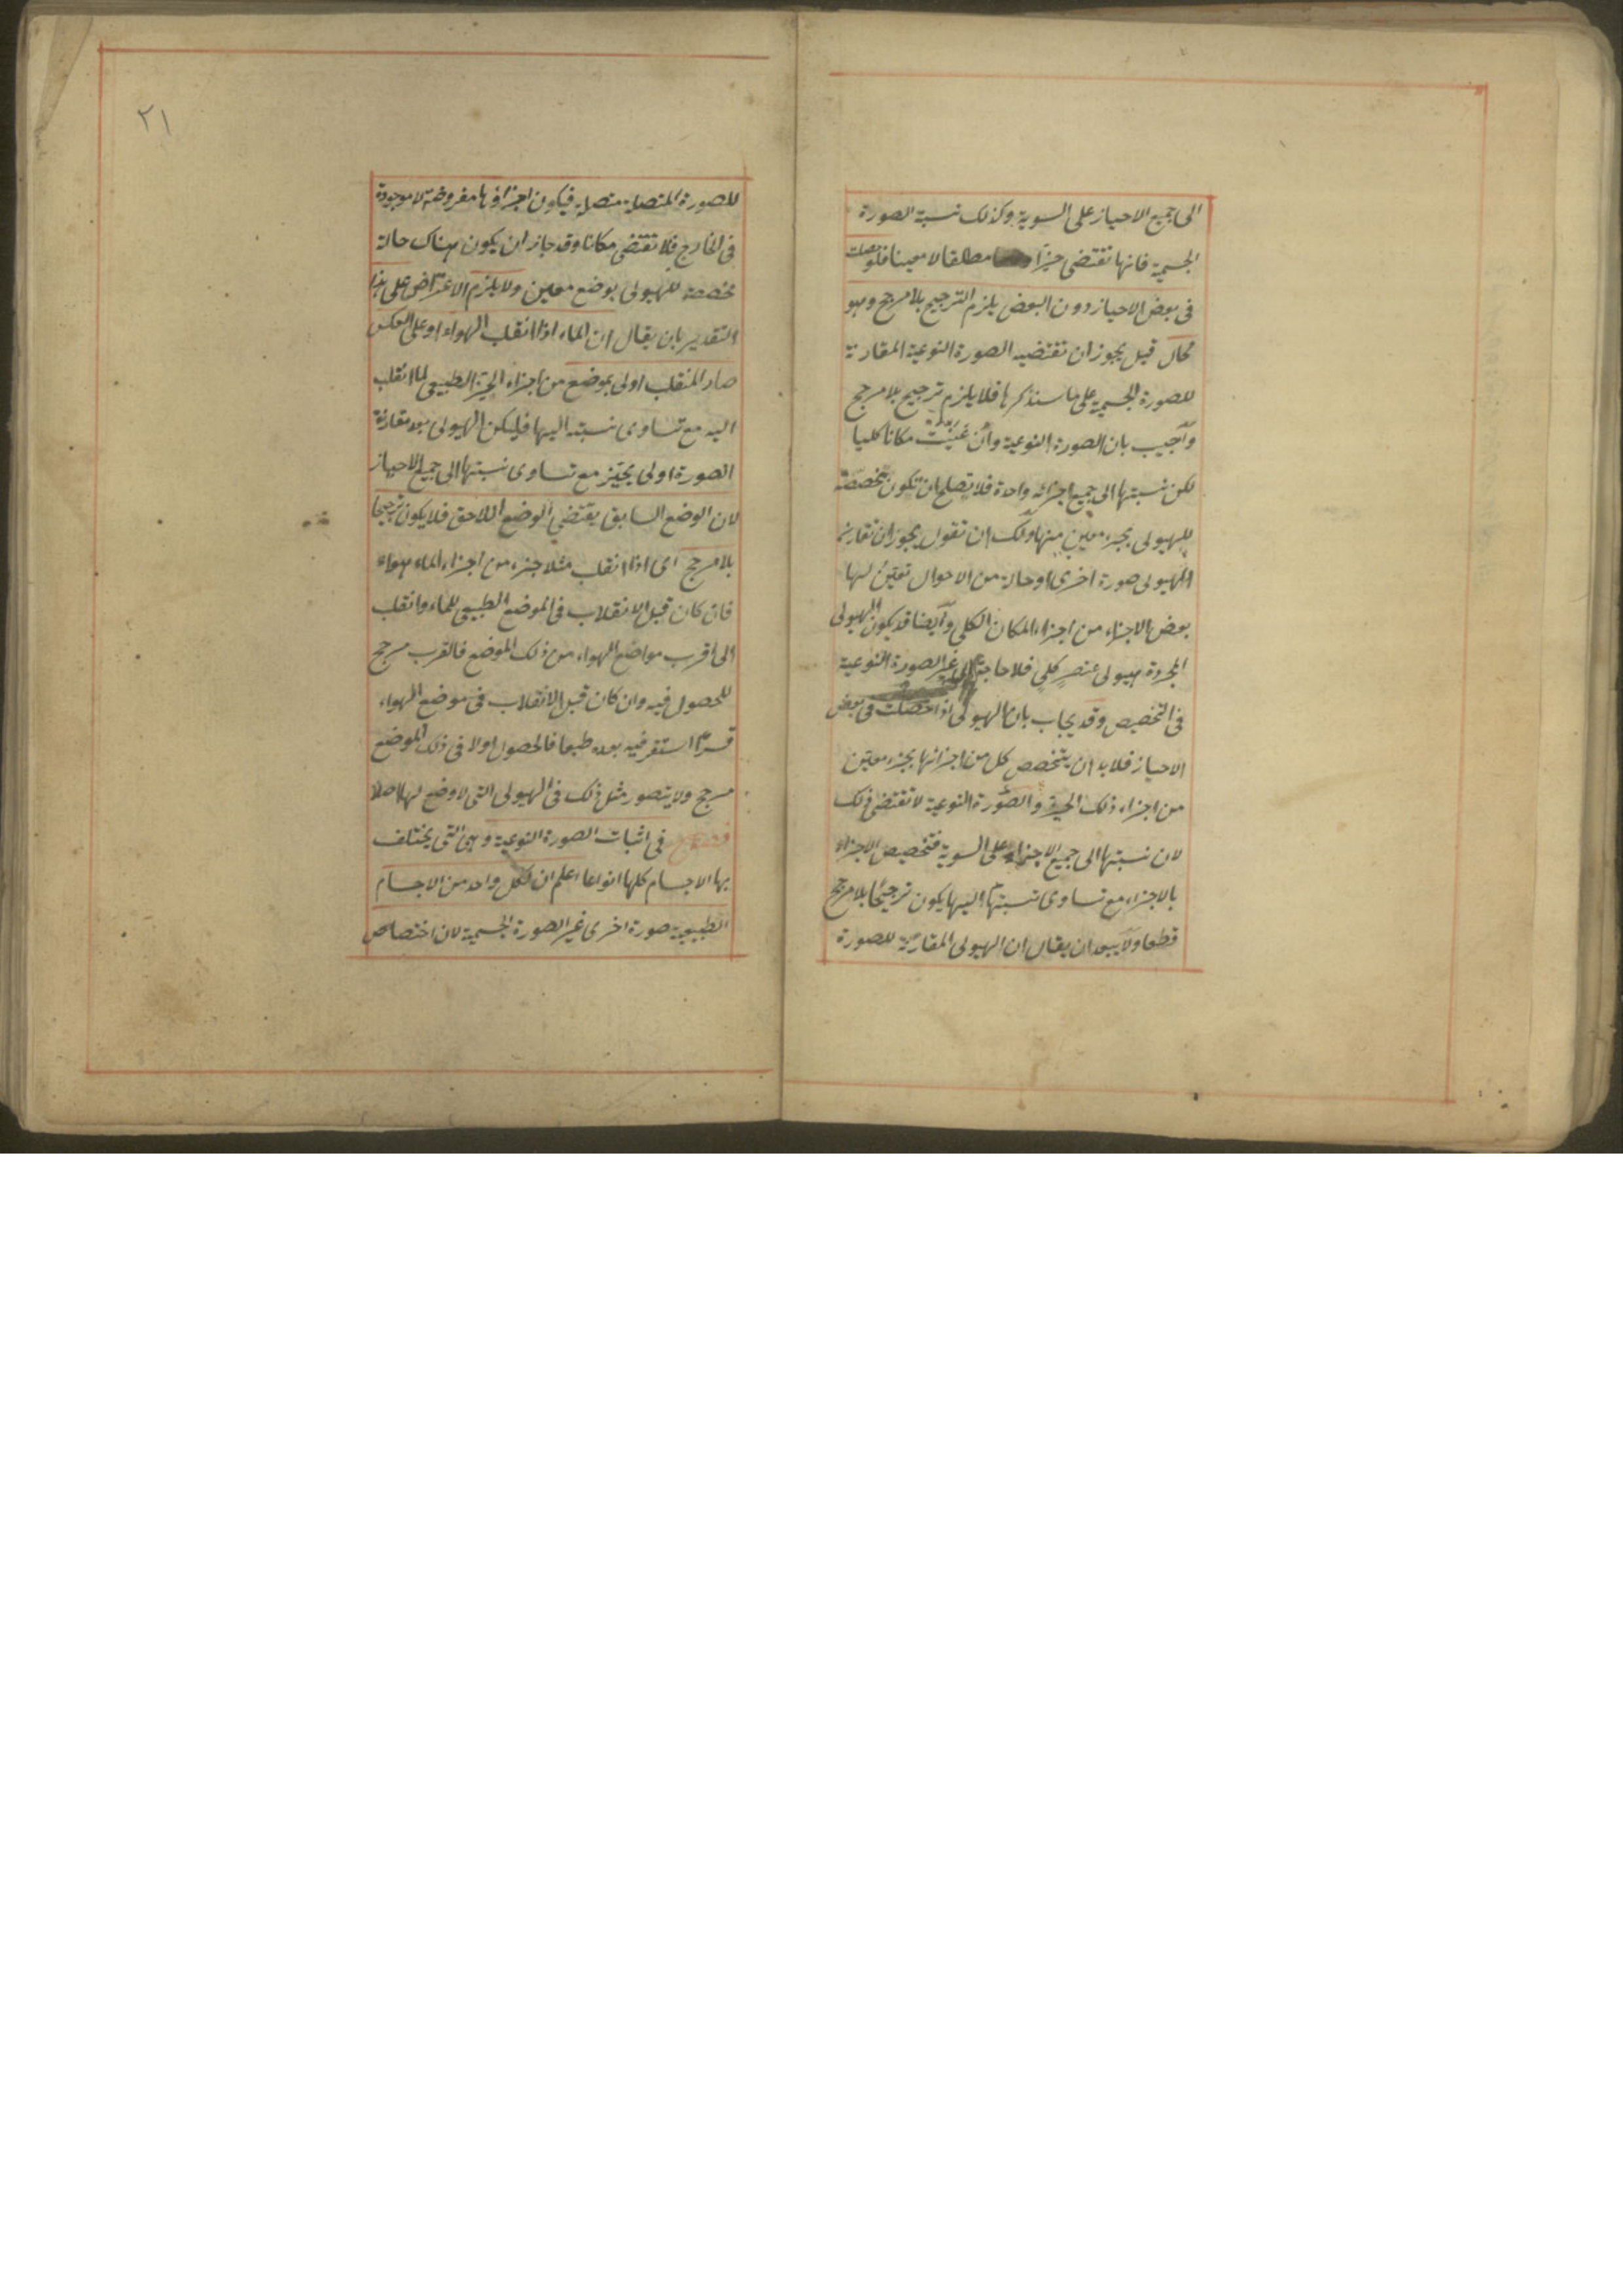 الى جميع الاحياز على السوية وكذلك نسبة الصورة
الجسمية فانها تقتضى حيزا مطلقا لا معينا فلو حصلت
فى بعض الاحياز دون البعض يلزم الترجيح بلا مرجح وهو
محال قيل يجوز ان تقتضيه الصورة النوعية المقارنة
للصورة الجسمية على ما سنذكرها فلا يلزم ترجيح بلا مرجح
وأجيب بان الصورة النوعية وأن عَيّنَتْ مكانا كليا
لكن نسبتها الى جميع اجزائه واحدة فلا تصلح ان تكون مخصصة
للهيولى بجزء معين منها ولك ان تقول يجوز ان تقارن
الهيولى صورة اخرى او حالة من الاحوال تعين لها
بعض الاجزاء من اجزاء المكان الكلى وأيضا قد يكون الهيولى
المجردة هيولى عنصر كلى فلا حاجة الى غير الصورة النوعية
فى التخصيص وقد يجاب بان الهيولى اذا حصلت فى بعض
الاحياز فلا بد ان يتخصص كل من اجزائها بجزء معين
من اجزاء ذلك الحيز والصورة النوعية لا تقتضى ذلك
لان نسبتها الى جميع الاجزاء على السوية فتخصيص الاجزاء
بالاجزاء مع تساوى نسبتها اليها يكون ترجيحا بلا مرجح
قطعا ولا يبعد ان يقال ان الهيولى المقارنة للصورة
٢١
للصورة المتصلة متصلة فيكون اجزاؤها مفروضة لا موجودة
فى الخارج فلا تقتضى مكانا وقد جاز ان يكون هناك حالة
مخصصة للهيولى بوضع معين ولا يلزم الاعتراض على هذا
التقدير بان يقال ان الماء اذا انقلب الهواء او على العكس
صار المنقلب اولى بموضع من اجزاء الحيز الطبيعى لما انقلب
اليه مع تساوى نسبته اليها فليكن الهيولى بعد مقارنة
الصورة اولى بحيز مع تساوى نسبتها الى جميع الاحياز
لان الوضع السابق يقتضى الوضع اللاحق فلا يكون ترجيحا
بلا مرجح اى اذا انقلب مثلا جزء من اجزاء الماء هواء
فان كان قبل الانقلاب فى الموضع الطبيعى للماء وانقلب
الى اقرب مواضع الهواء من ذلك الموضع فالقرب مرجح
للحصول فيه وان كان قبل الانقلاب فى موضع الهواء
قسرا استقر فيه بعده طبعا فالحصول اولا فى ذلك الموضع
مرجح ولا يتصور مثل ذلك فى الهيولى التى لا وضع لها اصلا
فصل فى اثبات الصورة النوعية وهى التى يختلف
بها الاجسام كلها انواعا اعلم ان لكل واحد من الاجسام
الطبيعية صورة اخرى غير الصورة الجسمية لان اختصاص